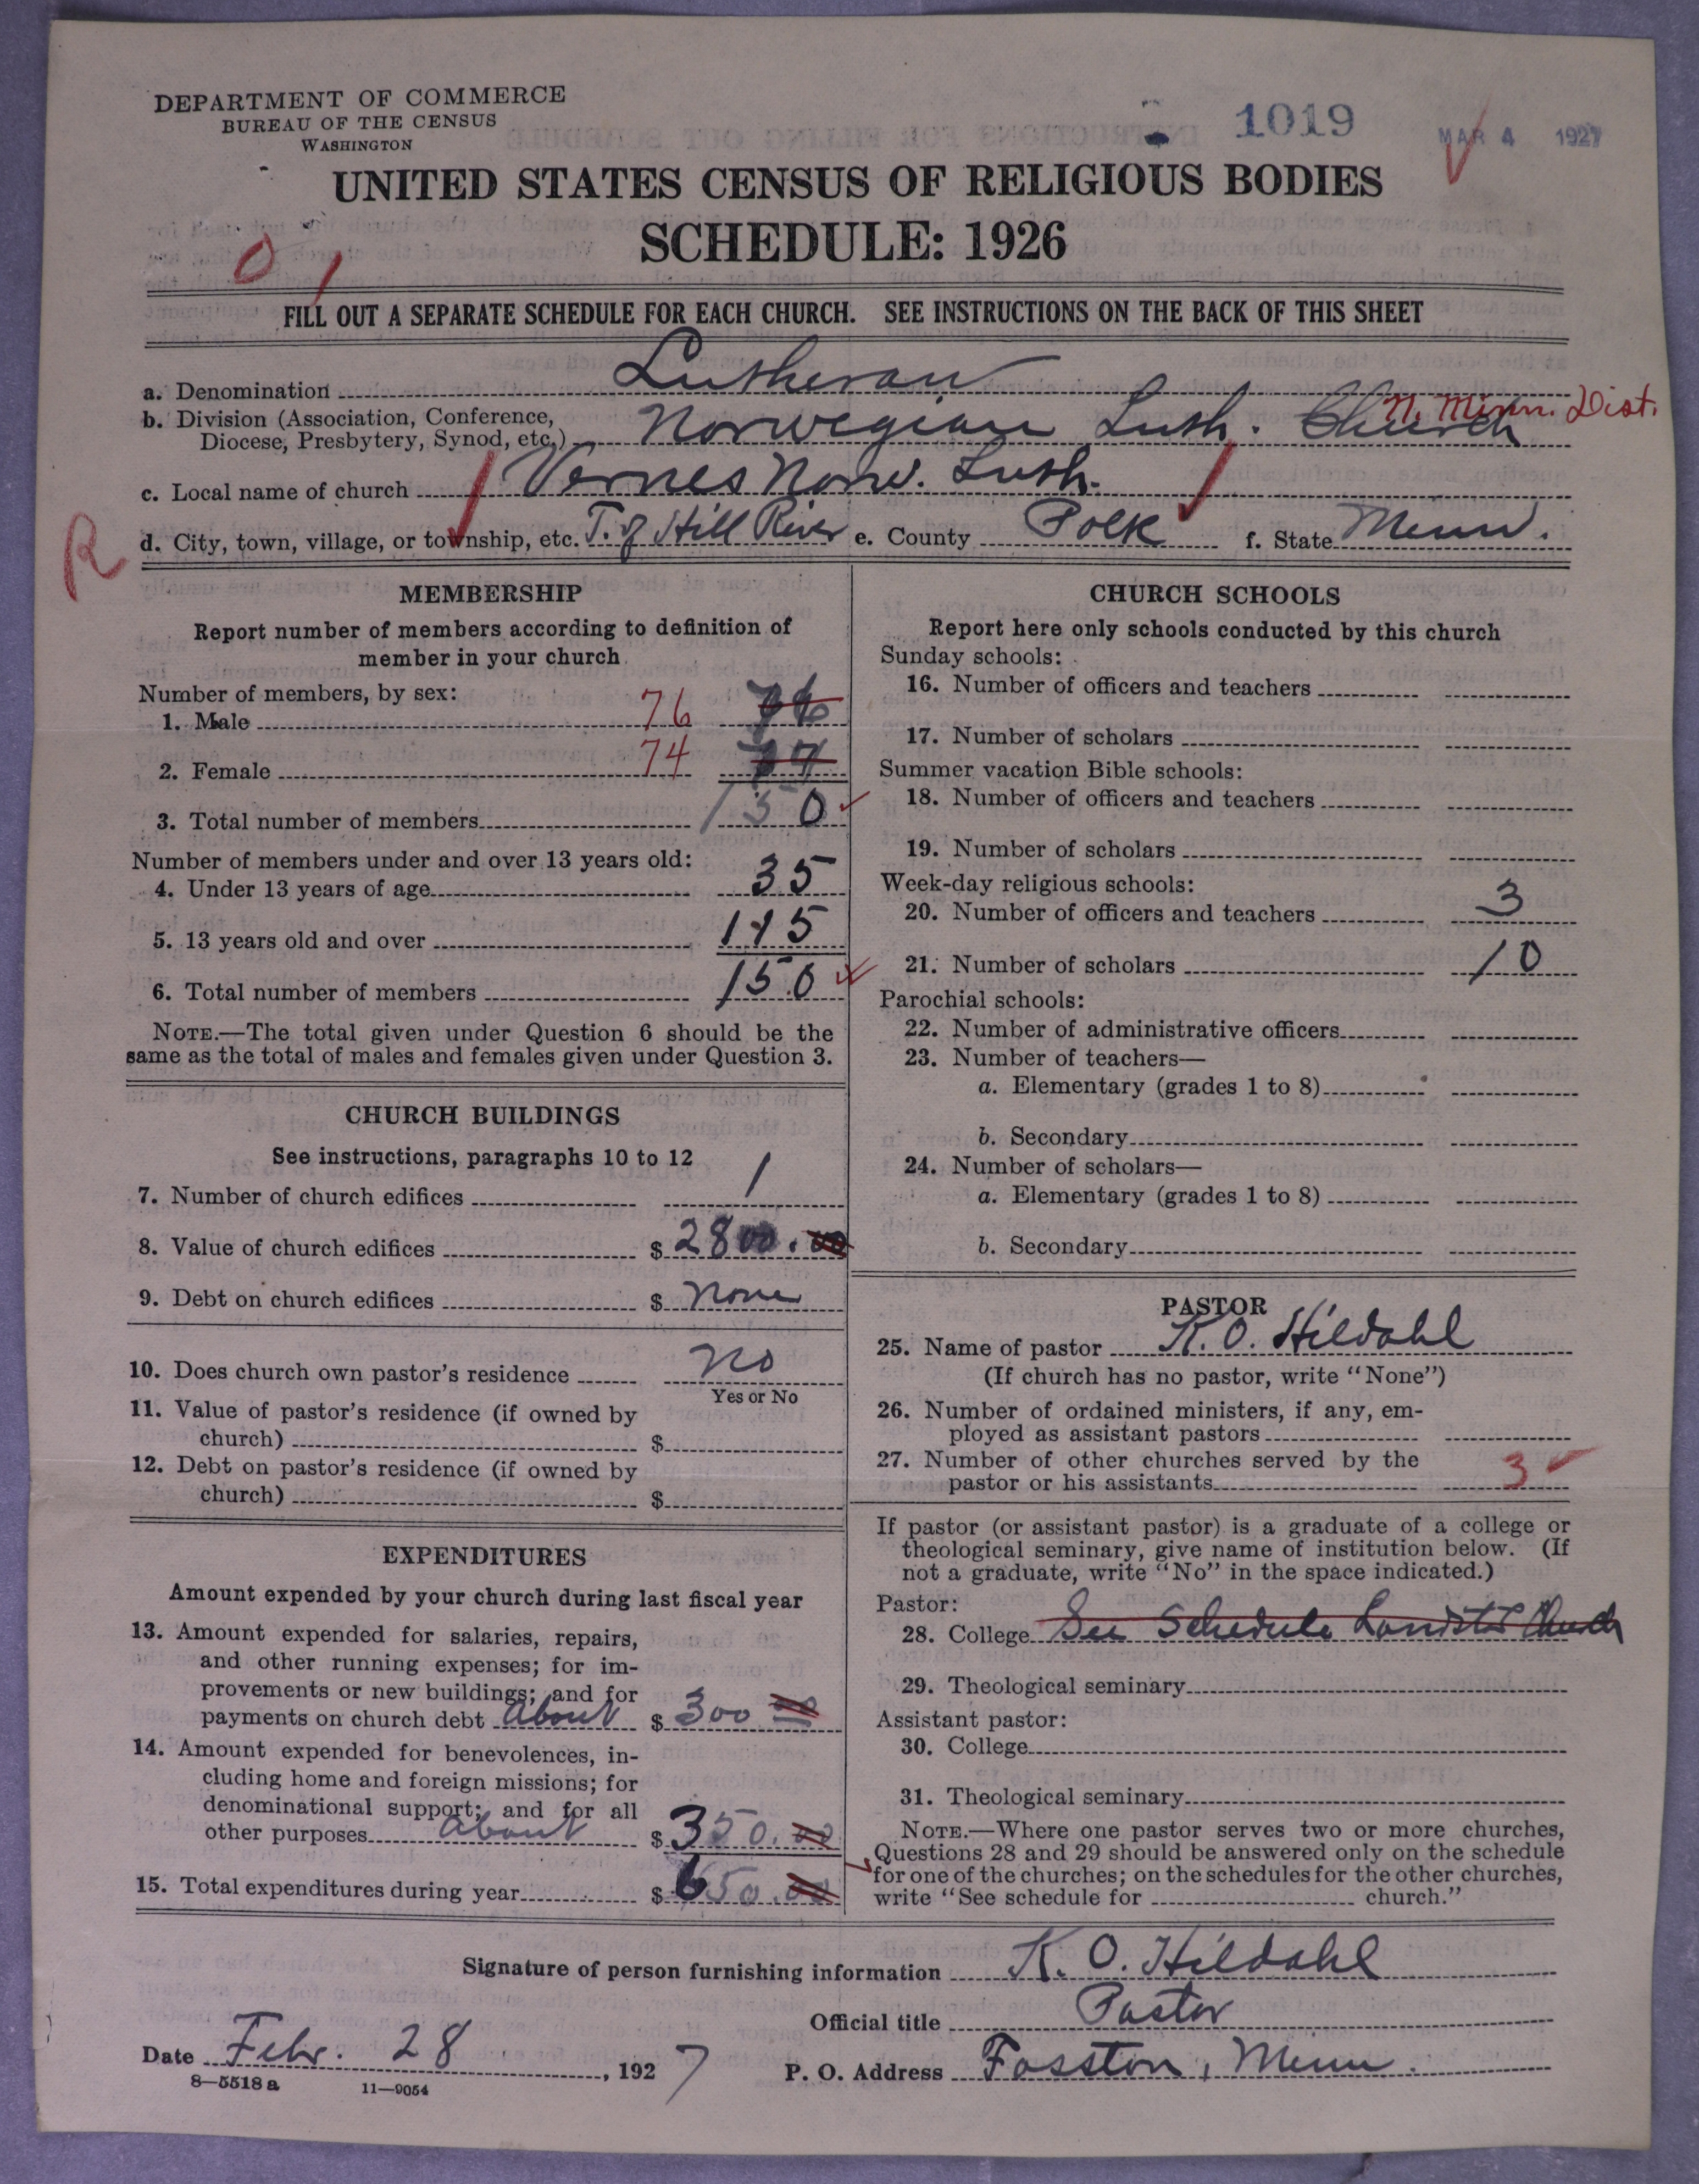 DEPARTMENT OF COMMERCE
BUREAU OF THE CENSUS
WASHINGTON
1019
MAR 4 1927
UNITED STATES CENSUS OF RELIGIOUS BODIES
SCHEDULE: 1926
FILL OUT A SEPARATE SCHEDULE FOR EACH CHURCH. SEE INSTRUCTIONS ON THE BACK OF THIS SHEET
a. Denomination Lutheran
b. Division (Association, Conference,
Diocese, Presbytery, Synod, etc.) Norwegian Luth. Church N. Minn. Dist.
c. Local name of church Vernes Norw. Luth.
R
d. City, town, village, or township, etc. T. of Hill River e. County Polk f. State Minn.
MEMBERSHIP
Report number of members according to definition of
member in your church
Number of members, by sex:
1. Male 76 76
2. Female 74
3. Total number of members 150
Number of members under and over 13 years old:
4. Under 13 years of age 35
5. 13 years old and over 115
6. Total number of members 150
NOTE.—The total given under Question 6 should be the
same as the total of males and females given under Question 3.
CHURCH BUILDINGS
See instructions, paragraphs 10 to 12
7. Number of church edifices 1
8. Value of church edifices $ 2800.00
9. Debt on church edifices $ None
10. Does church own pastor's residence No
Yes or No
11. Value of pastor's residence (if owned by
church) $
12. Debt on pastor's residence (if owned by
church) $
EXPENDITURES
Amount expended by your church during last fiscal year
13. Amount expended for salaries, repairs,
and other running expenses; for im-
provements or new buildings; and for
payments on church debt About $ 300 00
14. Amount expended for benevolences, in-
cluding home and foreign missions; for
denominational support; and for all
other purposes About $ 350.00
15. Total expenditures during year $ 650.00
CHURCH SCHOOLS
Report here only schools conducted by this church
Sunday schools:
16. Number of officers and teachers
17. Number of scholars
Summer vacation Bible schools:
18. Number of officers and teachers
19. Number of scholars
Week-day religious schools:
20. Number of officers and teachers 3
21. Number of scholars 10
Parochial schools:
22. Number of administrative officers
23. Number of teachers—
a. Elementary (grades 1 to 8)
b. Secondary
24. Number of scholars—
a. Elementary (grades 1 to 8)
b. Secondary
PASTOR
25. Name of pastor K. O. Hildahl
(If church has no pastor, write "None")
26. Number of ordained ministers, if any, em-
ployed as assistant pastors
27. Number of other churches served by the
pastor or his assistants 3
If pastor (or assistant pastor) is a graduate of a college or
theological seminary, give name of institution below. (If
not a graduate, write "No" in the space indicated.)
Pastor:
28. College See Schedule Church
29. Theological seminary
Assistant pastor:
30. College
31. Theological seminary
NOTE.—Where one pastor serves two or more churches,
Questions 28 and 29 should be answered only on the schedule
for one of the churches; on the schedules for the other churches,
write "See schedule for church."
Signature of person furnishing information K. O. Hildahl
Official title Pastor
Date Febr. 28, 1927 P. O. Address Fosston, Minn.
8—5518 a 11—9054